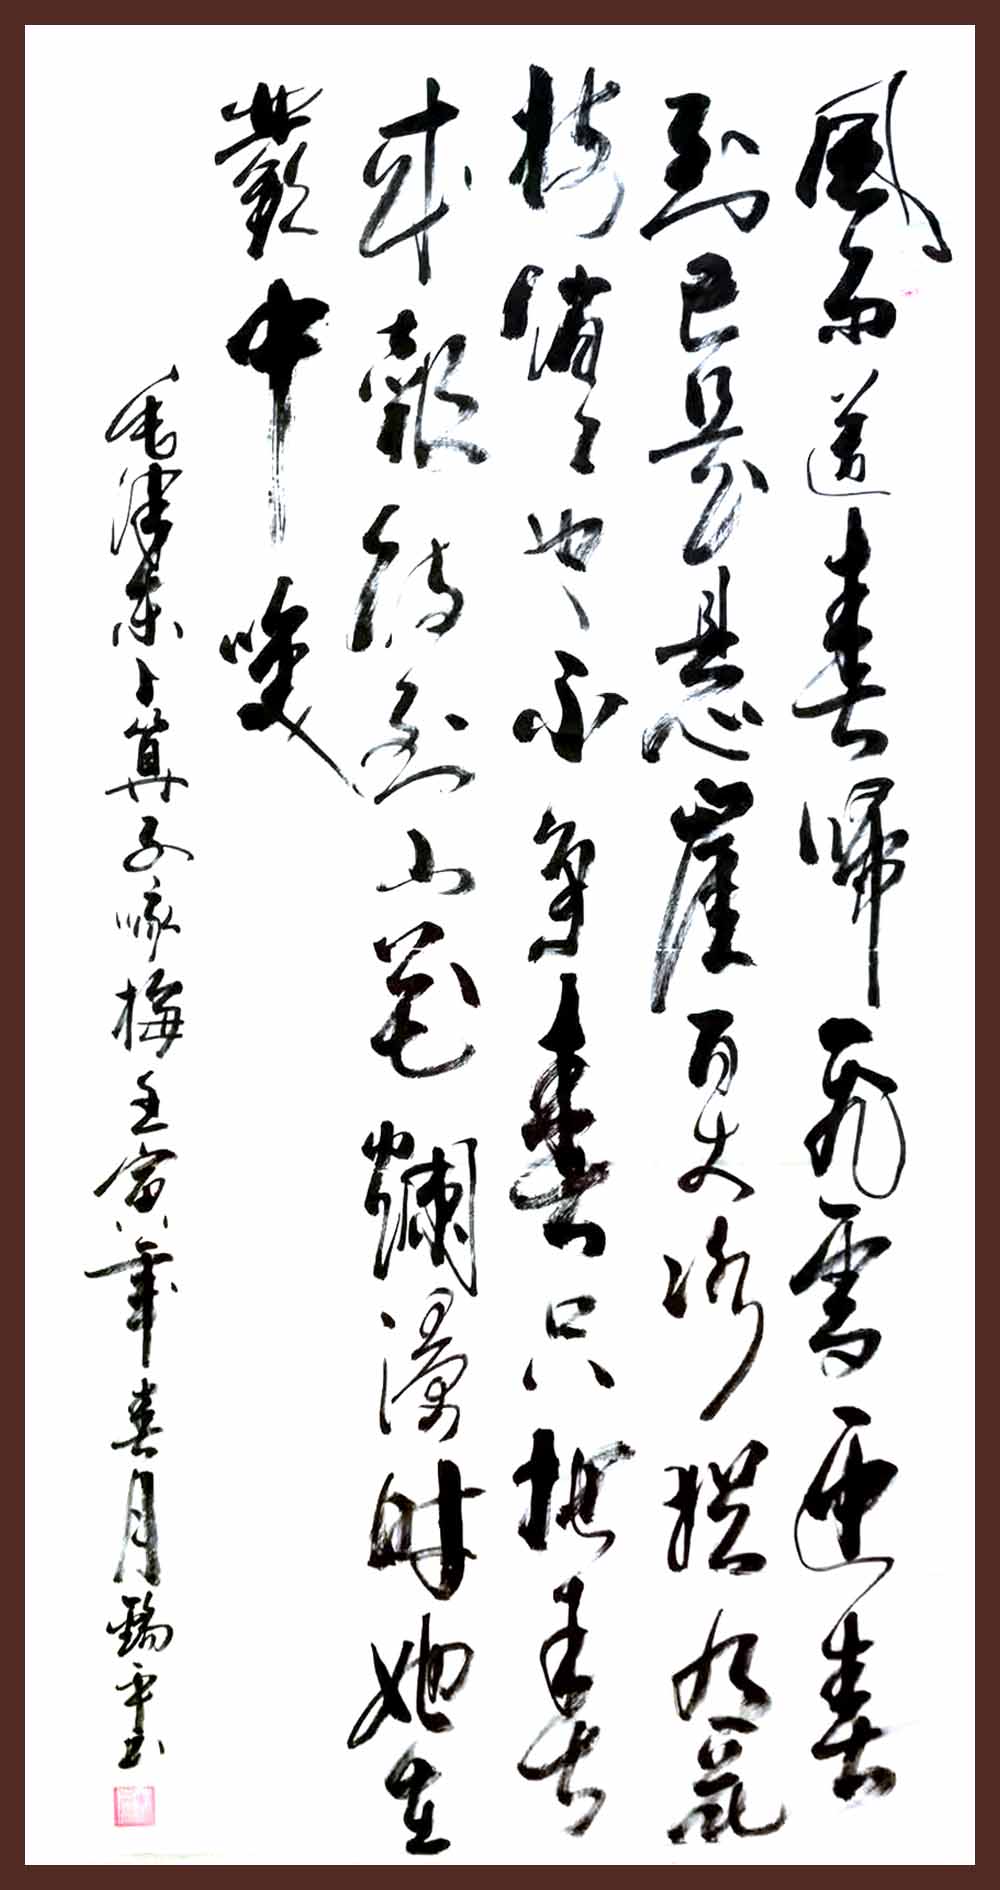 風雨送春歸飛雪迎春
到已是悬崖百丈冰猶有花
枝俏々也不争春只把春
来報待到山花爛漫時她在
叢中笑
毛澤東卜算子咏梅壬寅年春月錫平书